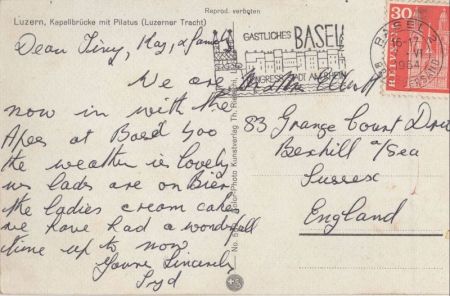 Reprod. verboten
Luzern, Kapellbrücke mit Pilatus (Luzerner Tracht)
GASTLICHES BASEL
KONGRESSTADT AM RHEIN
BASEL
16-17
1964
30
HELVETIA
Dear Tiny, May, & family
We are
now in with the
Apes at Basel Zoo
the weather is lovely
us lads are on Bier
the ladies cream cakes
we have had a wonderfull
time up to now
Yours Sincerely
Syd
Mr & Mrs
83 Grange Court Drive
Bexhill o/Sea
Sussex
England